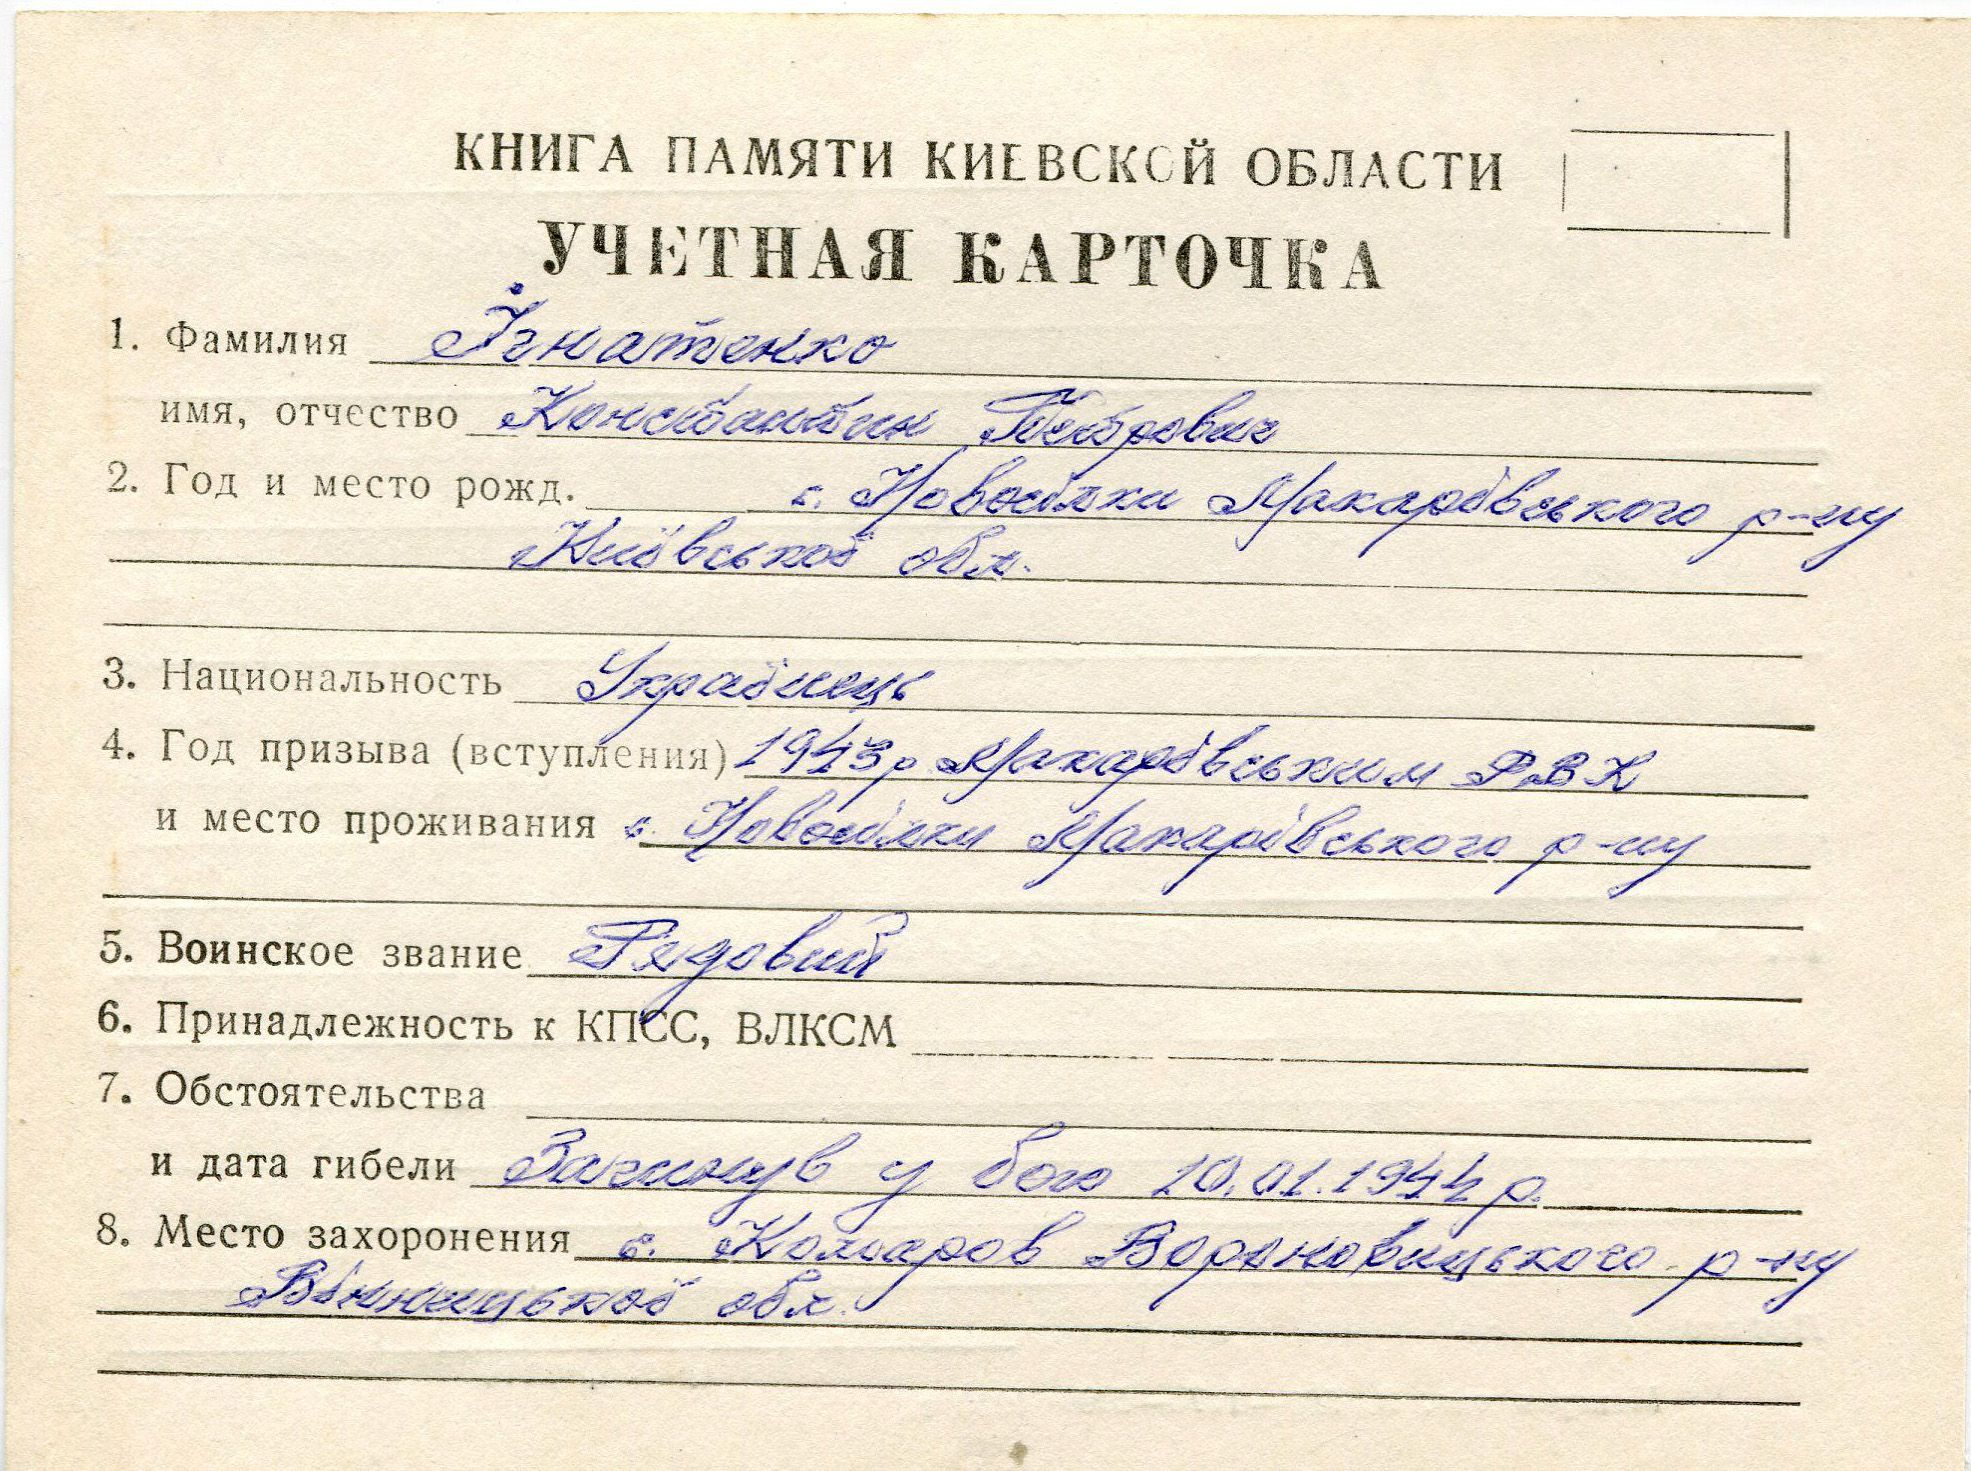 КНИГА ПАМЯТИ КИЕВСКОЙ ОБЛАСТИ
УЧЕТНАЯ КАРТОЧКА
1. Фамилия Ігнатенко
имя, отчество Константин Петрович
2. Год и место рожд. с. Новосілки Макарівського р-ну
Київської обл.
3. Национальность Українець
4. Год призыва (вступления) 1943 р Макарівським РВК
и место проживания с. Новосілки Макарівського р-ну
5. Воинское звание Рядовий
6. Принадлежность к КПСС, ВЛКСМ
7. Обстоятельства
и дата гибели Загинув у бою 10.01.1944 р.
8. Место захоронения с. Комаров Вороновицького р-ну
Вінницької обл.